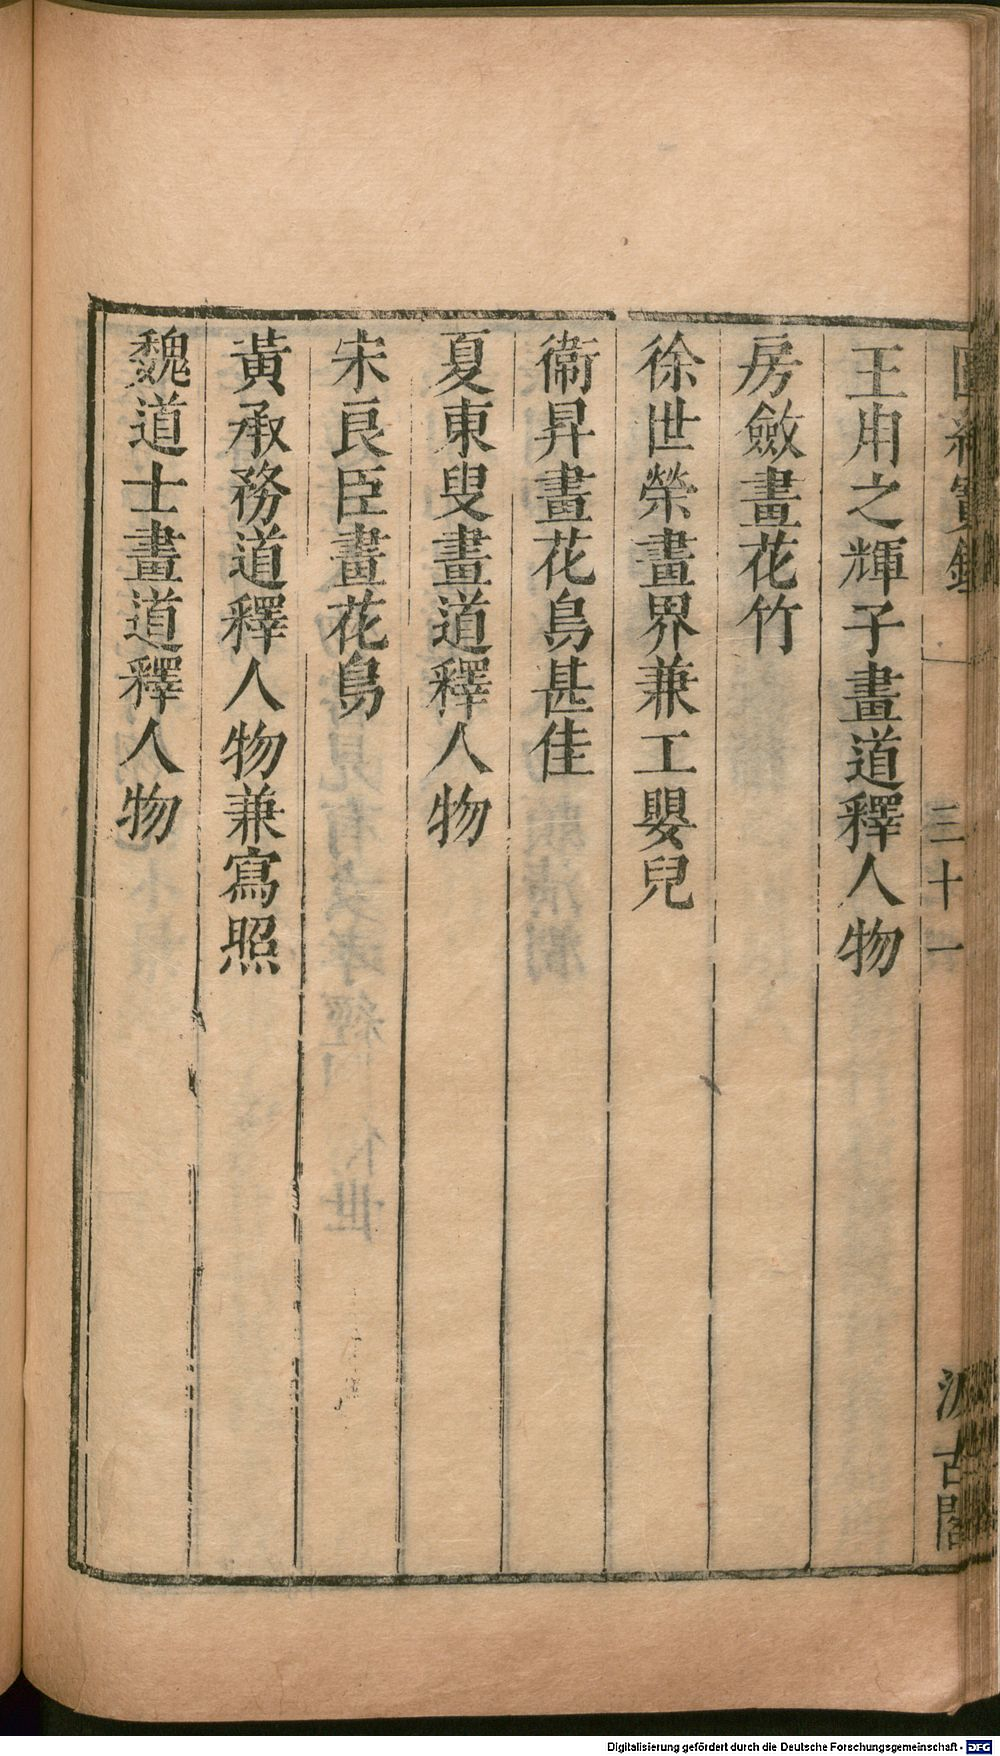 圖繪寶鑑
三十一
汲古閣
王用之輝子畫道釋人物
房斂畫花竹
徐世榮畫界兼工嬰兒
衞昇畫花鳥甚佳
夏東叟畫道釋人物
宋良臣畫花鳥
黃承務道釋人物兼寫照
魏道士畫道釋人物
Digitalisierung gefördert durch die Deutsche Forschungsgemeinschaft - DFG